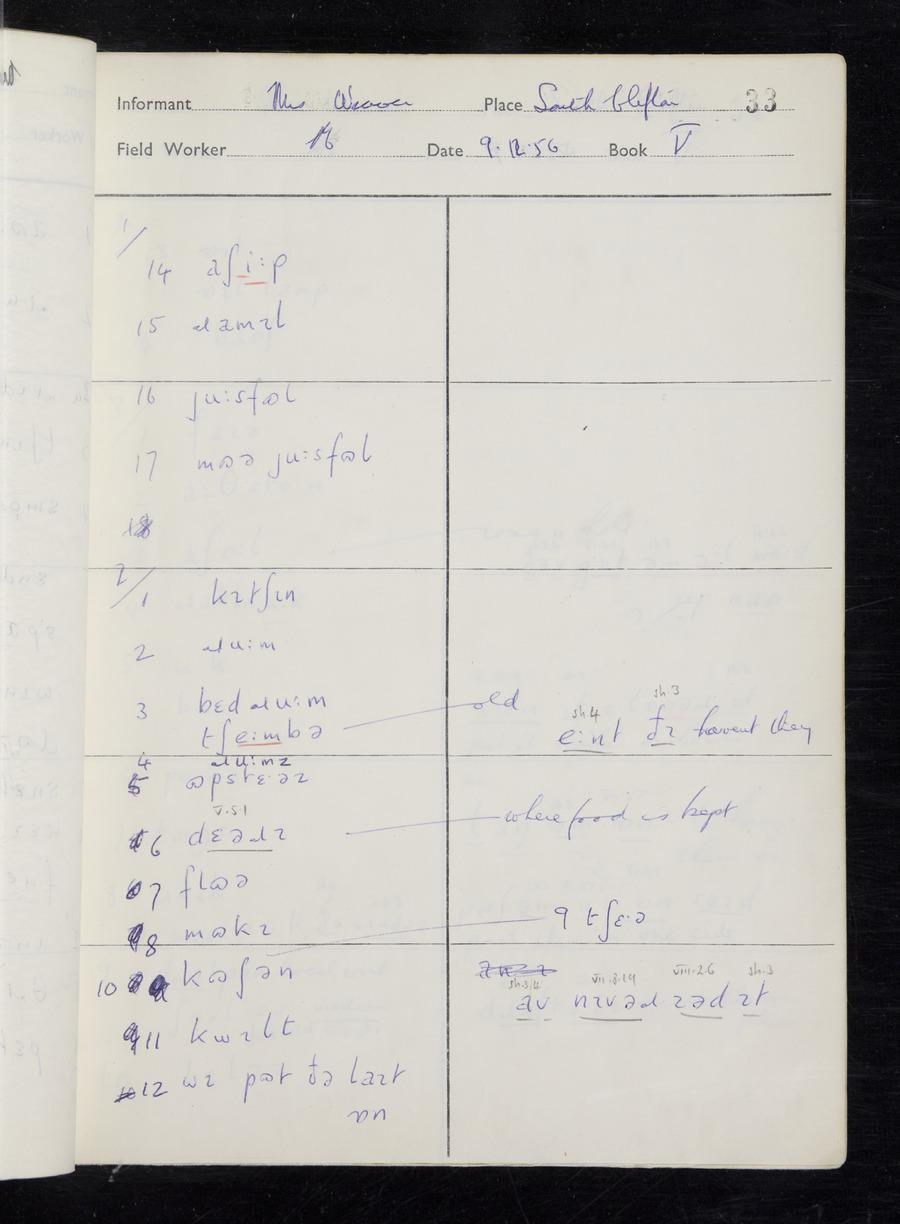 Informant Mrs Weaver Place South Clifton 33
Field Worker Date 9.12.56 Book V
1/
14 aʃi:p
15 ɹamɪl
16 ju:sfʊl
17 mʊə ju:sfʊl
18
2/
1 kɪtʃɪn
2 ɹu:m
3 bɛdɹu:m
tʃe:mbə old
sh.4 sh.3
e:nt ðɪ havent they
4 ɹu:mz
5 ʊpstɛ·əz
V.5.1
6 dɛəɹɪ where food is kept
7 flʊə
8 mʊkɪ
9 tʃɛ·ə
10 kʊʃən
sh.3/4 VII.8.19 VIII.2.6 sh.3
av nɪvəɹ ɪəd ɪt
11 kwɪlt
12 wɪ pʊt ðə laɪt
ɒn